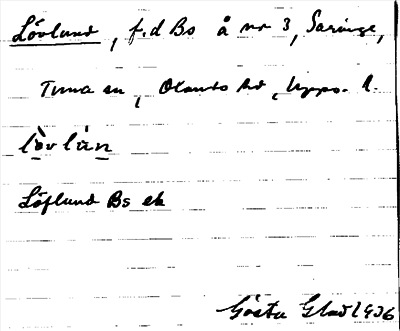 Lövlund, f.d Bs å nr 3, Saringe,
Tuna sn, Olands hd, Upps. l.
lòv lùn
Löflund Bs ek
Gösta Glad 1936